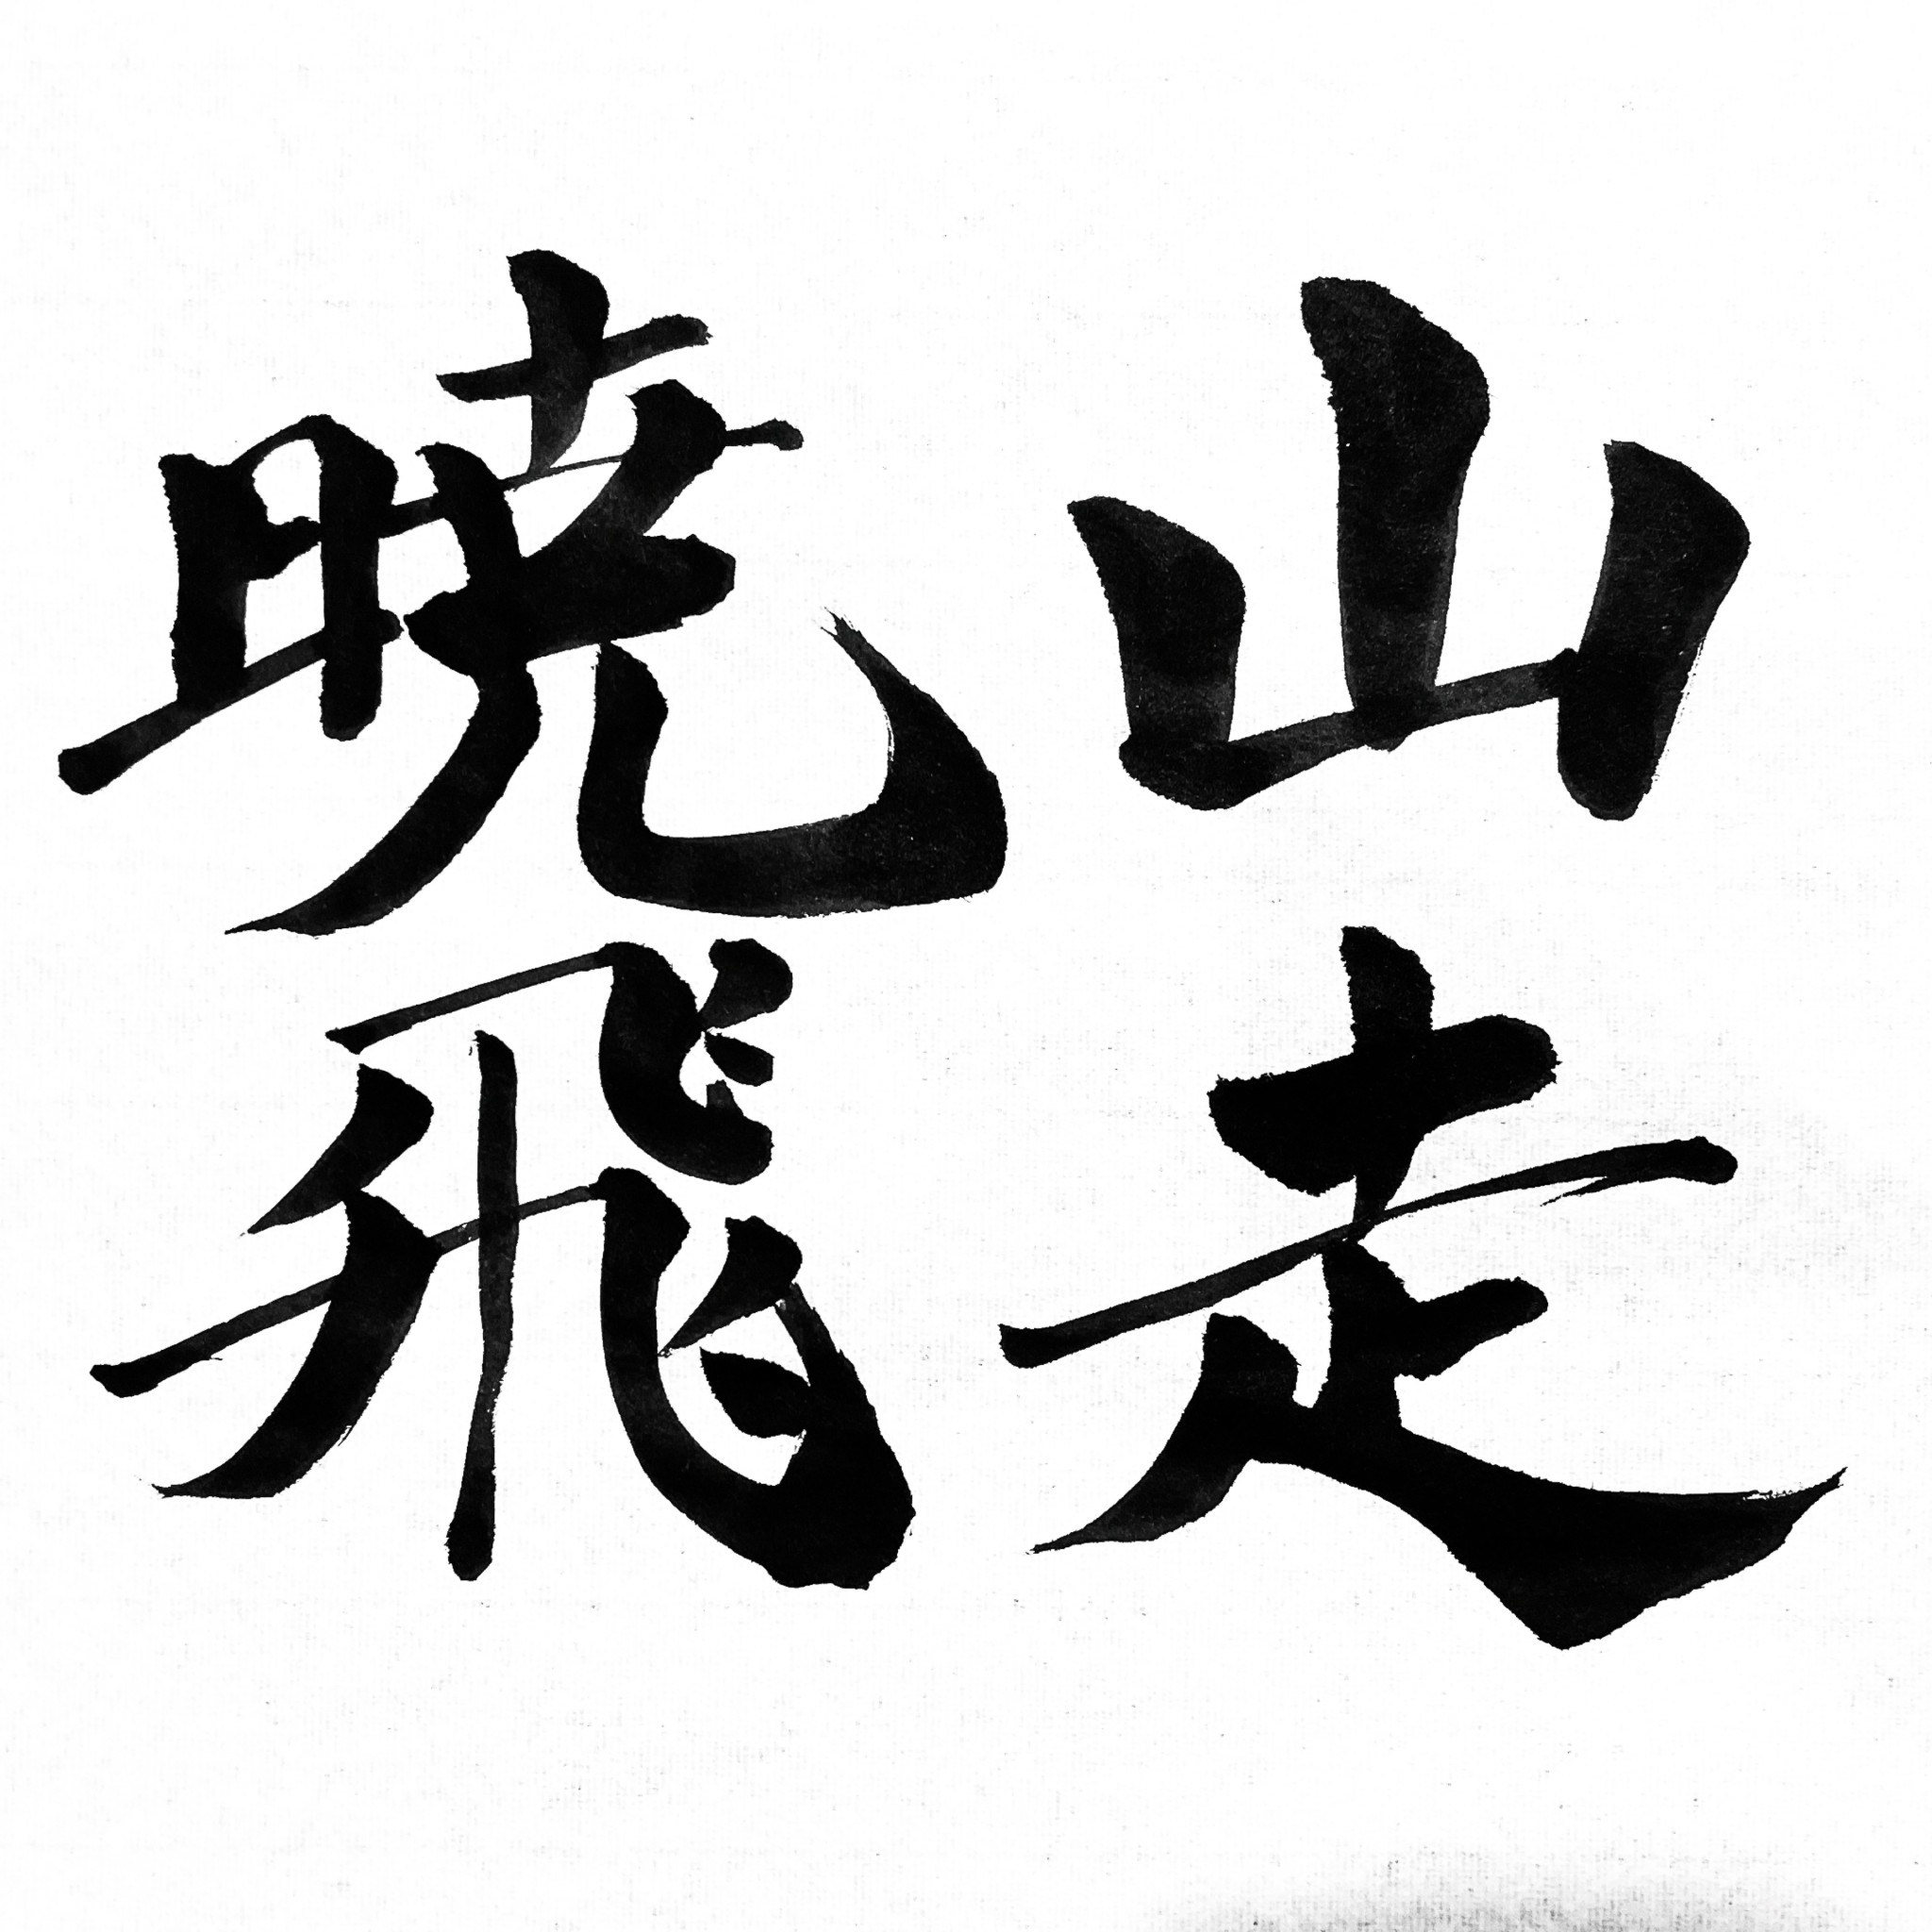 山走
暁飛